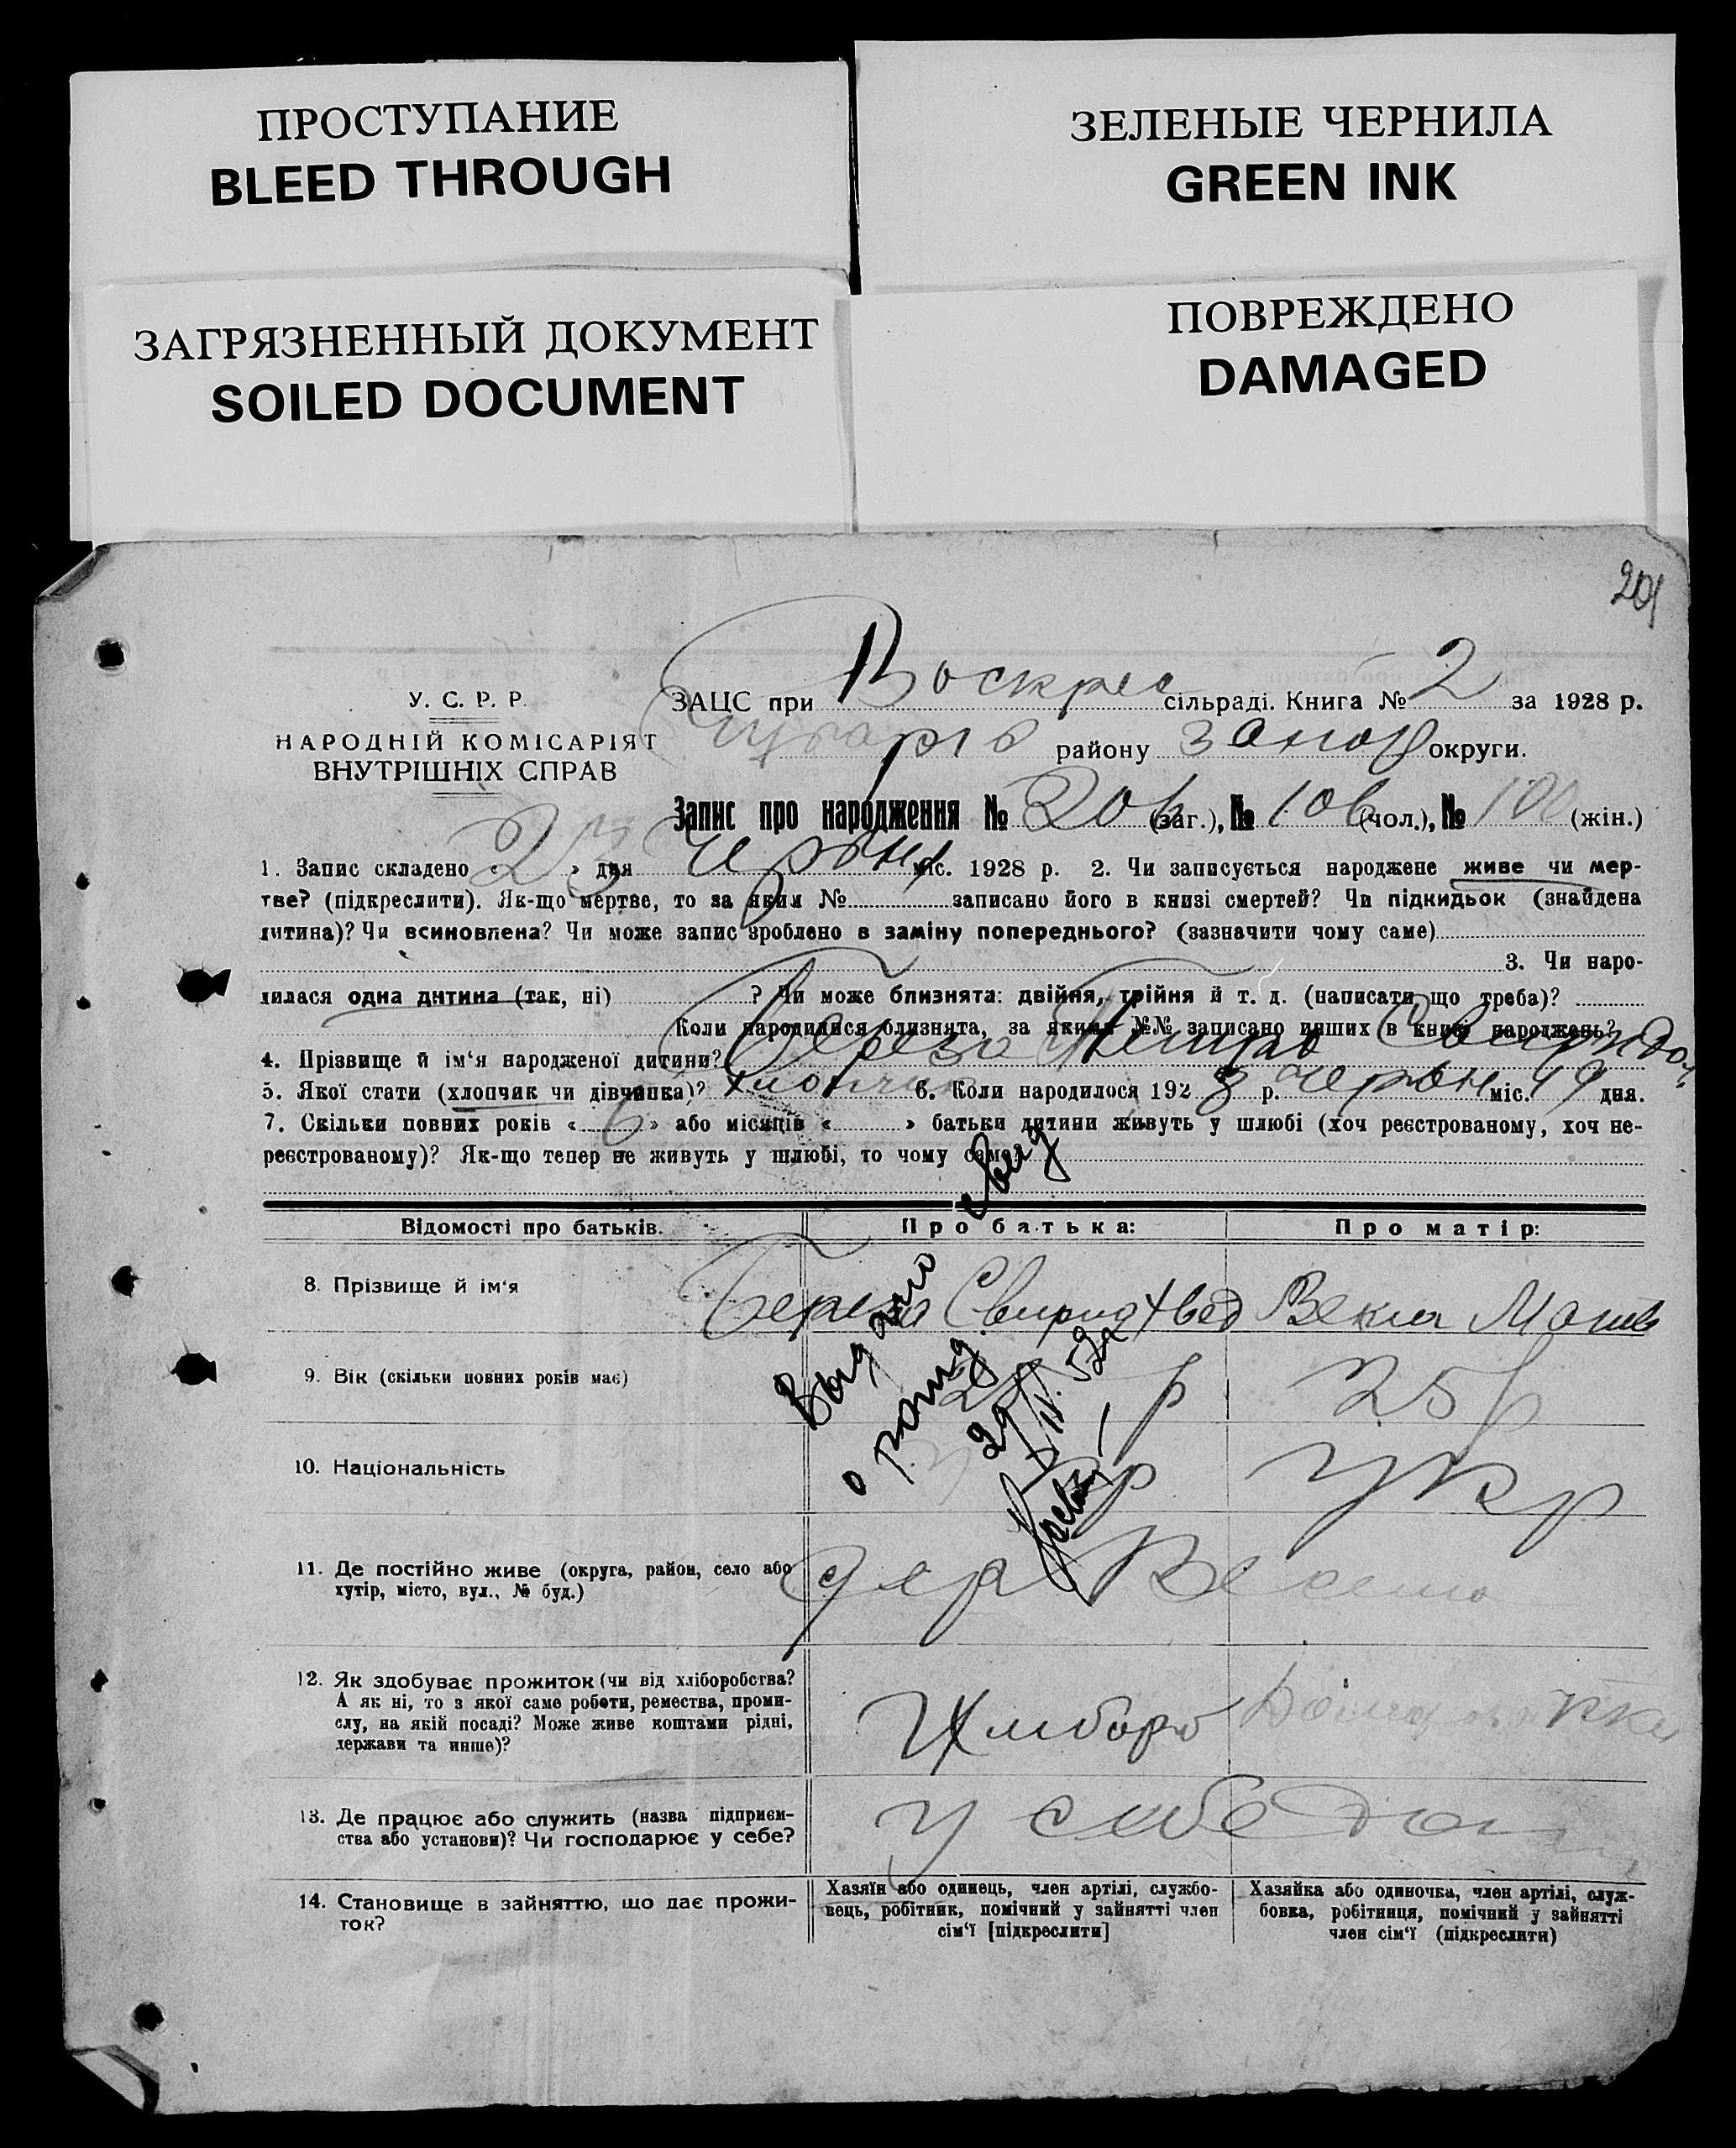 ПРОСТУПАНИЕ
BLEED THROUGH
ЗЕЛЕНЫЕ ЧЕРНИЛА
GREEN INK
ЗАГРЯЗНЕННЫЙ ДОКУМЕНТ
SOILED DOCUMENT
ПОВРЕЖДЕНО
DAMAGED
201
У. С. Р. Р.
НАРОДНІЙ КОМІСАРІЯТ
ВНУТРІШНІХ СПРАВ
ЗАЦС при Воскрес сільраді. Книга № 2 за 1928 р.
району Запор округи.
Запис про народження № 206 (заг.), № 106 (чол.), № 100 (жін.)
1. Запис складено « 23 » дня червн міс. 1928 р. 2. Чи записується народжене живе чи мер-
тве? (підкреслити). Як-що мертве, то за яким № записано його в книзі смертей? Чи підкидьок (знайдена
дитина)? Чи всиновлена? Чи може запис зроблено в заміну попереднього? (зазначити чому саме)
3. Чи наро-
дилася одна дитина (так, ні) ? Чи може близнята: двійня, трійня й т. д. (написати що треба)?
Коли народилися близнята, за якими №№ записано инших в книзі народжень?
4. Прізвище й ім‘я народженої дитини? Береза Петро Свиридов
5. Якої стати (хлопчик чи дівчинка)? хлопчик 6. Коли народилося 192 8 р. червн міс. 19 дня.
7. Скільки повних років « 6 » або місяців « » батьки дитини живуть у шлюбі (хоч реєстрованому, хоч не-
реєстрованому)? Як-що тепер не живуть у шлюбі, то чому саме?
Відомості про батьків. Про батька: Про матір:
8. Прізвище й ім‘я Береза Свирид Хвед Векла Матв
9. Вік (скільки повних років має) р 25 р
10. Національність укр укр
11. Де постійно живе (округа, район, село або
хутір, місто, вул., № буд.) дер Весело
12. Як здобуває прожиток (чи від хліборобства?
А як ні, то з якої саме роботи, ремества, проми-
слу, на якій посаді? Може живе коштами рідні,
держави та инше)? Хлибороб
13. Де працює або служить (назва підприєм-
ства або установи)? Чи господарює у себе? у себе дома
14. Становище в зайняттю, що дає прожи-
ток?
Хазяїн або одинець, член артілі, службо-
вець, робітник, помічний у зайнятті член
сім‘ї [підкреслити]
Хазяйка або одиночка, член артілі, служ-
бовка, робітниця, помічний у зайнятті
член сім‘ї (підкреслити)
Выдано свид
о рожд
29/IV. 52г